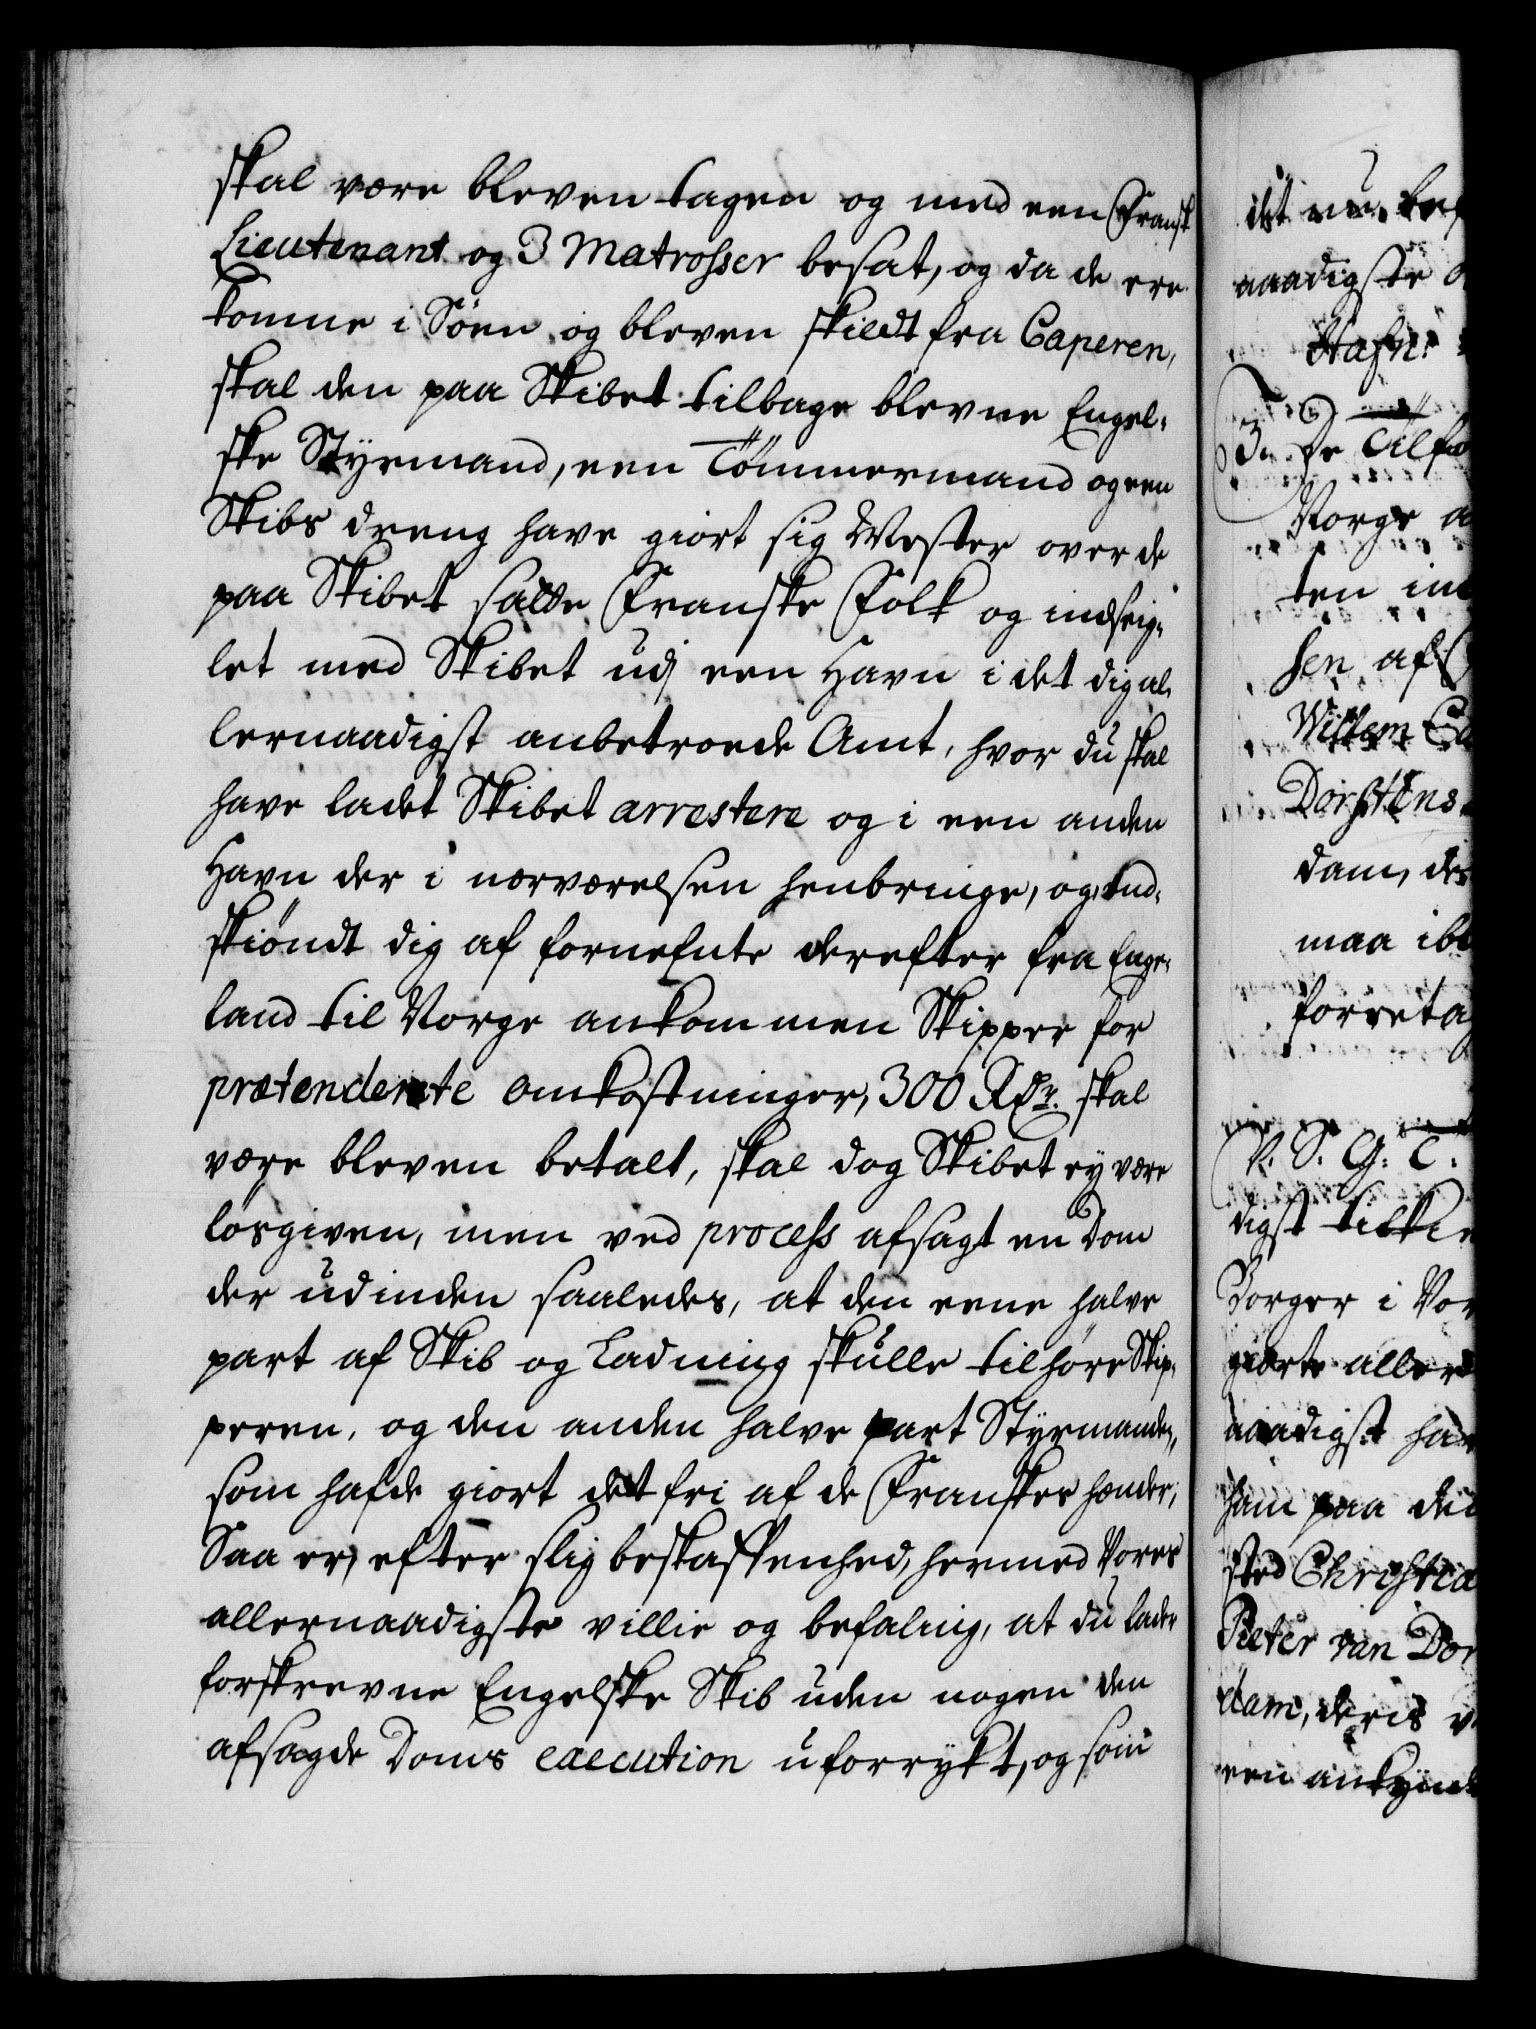 skal være bleven tagen og med een Fransk
Lieutenant og 3 Matrosser besat, og da de ere
komne i Söen og bleven skildt fra Caperen,
skal den paa Skibet tilbage blevne Engel-
ske Styrmand, een Tömmermand og een
Skibs dreng have giort sig Mester over de
paa Skibet satte Franske Folk og indseig-
let med Skibet udj een Havn i det dig al-
lernaadigst anbetroede Amt, hvor du skal
have ladet Skibet arrestere og i een anden
Havn der i nærværelsen henbringe, og end-
skiöndt dig af fornefnte derefter fra Enge-
land til Norge ankommen Skipper for
prætenderete omkostninger, 300 Rdr. skal
være bleven betalt, skal dog Skibet ey være
lösgiven, men ved process afsagt en Dom
der udinden saaledes, at den eene halve
part af Skib og Ladning skulle tilhöre Skip-
peren, og den anden halve part Styrmanden,
som hafde giort det fri af de Franskes hænder;
Saa er, efter slig beskaffenhed, hermed Vores
allernaadigste villie og befaling, at du lader
forskrevne Engelske Skib uden nogen den
afsagde Doms execution uforrykt, og som
det nu
naadigste
Hafn:
3. De Tilfo
Norge
ten in
sen af
Willem
Dorstens
dam, de
maa ibe
forreta
P. S. G. T.
digst tilkie
Borger i Nor
giorte aller
naadigst ha
ham paa de
sted Christia
Pieter van Dor
dam, deris
een ankynd